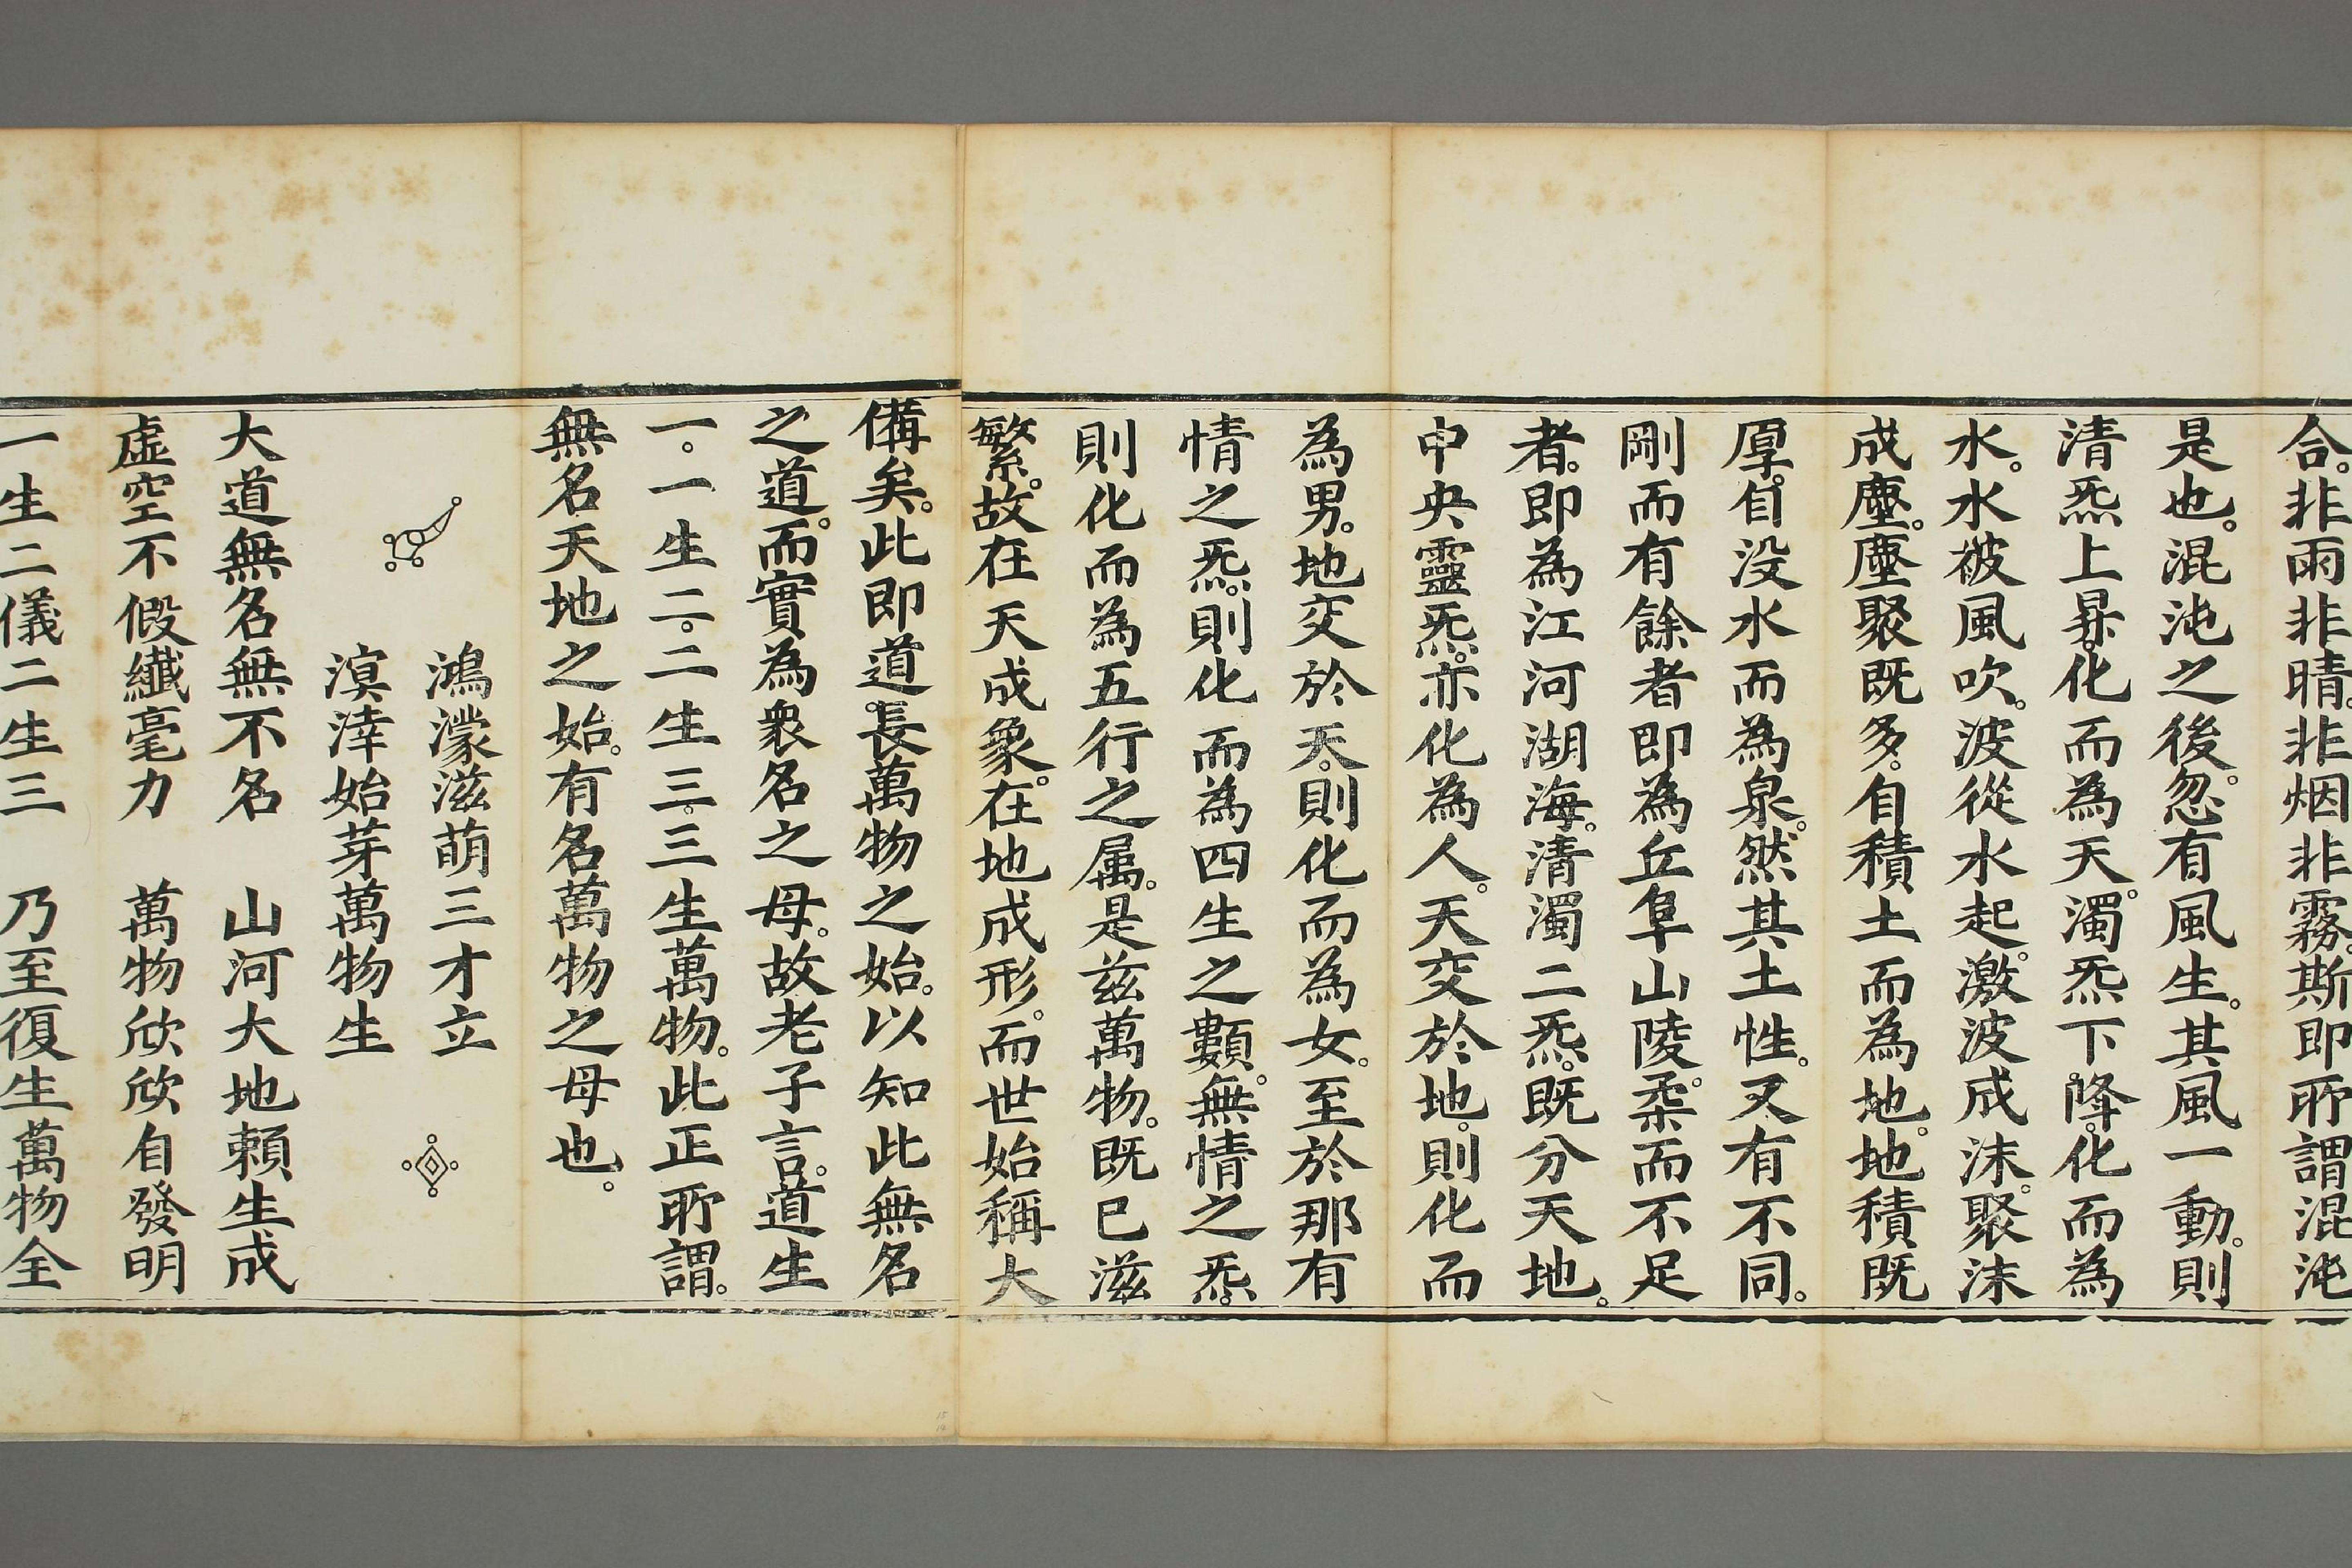 合。非雨非晴。非烟非霧。斯即所謂混沌
是也。混沌之後。忽有風生。其風一動。則
清炁上昇。化而為天。濁炁下降。化而為
水。水被風吹。波從水起。激波成沫。聚沫
成塵。塵聚既多。自積土而為地。地積既
厚。自没水而為泉。然其土性。又有不同。
剛而有餘者即為丘阜山陵。柔而不足
者。即為江河湖海。清濁二炁。既分天地。
中央靈炁。亦化為人。天交於地。則化而
為男。地交於天。則化而為女。至於那有
情之炁。則化而為四生之數。無情之炁。
則化而為五行之属。是兹萬物。既已滋
繁。故在天成象。在地成形。而世始稱大
備矣。此即道。長萬物之始。以知此無名
之道。而實為衆名之母。故老子言。道生
一。一生二。二生三。三生萬物。此正所謂。
無名天地之始。有名萬物之母也。
鴻濛滋萌三才立
溟涬始芽萬物生
大道無名無不名　山河大地賴生成
虛空不假纖毫力　萬物欣欣自發明
一生二儀二生三　乃至復生萬物全